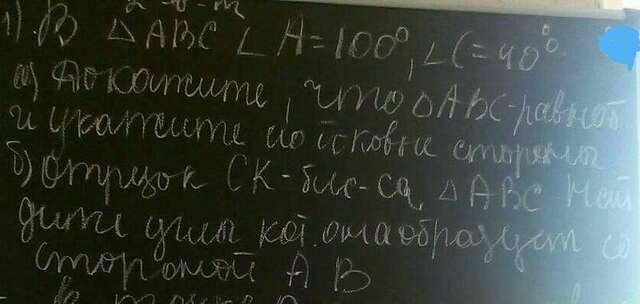 1) В △ ABC ∠ A = 100°, ∠C = 40°.
а) Докажите, что △ ABC - равноб.
и укажите его боковые стороны
б) Отрезок СК - бис-са, △ ABC Най
дите углы кот. она образует со
стороной А В